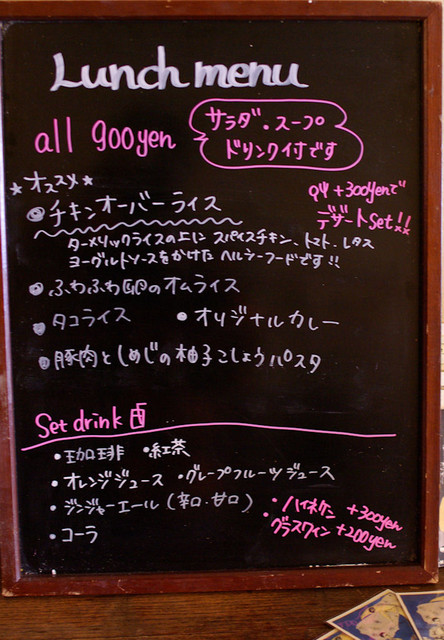 Lunch menu
all 900yen
サラダ・スープ
ドリンク付です
★オススメ★
チキンオーバーライス
+300yenで
デザートSet!!
ターメリックライスの上に スパイスチキン、トマト、レタス
ヨーグルトソースをかけた ヘルシーフードです!!
ふわふわ卵のオムライス
タコライス ●オリジナルカレー
豚肉としめじの柚子こしょうパスタ
Set drink
・珈琲 ・紅茶
・オレンジジュース ・グレープフルーツジュース
・ジンジャーエール(辛口・甘口)
・ハイネケン +300yen
・グラスワイン +200yen
・コーラ